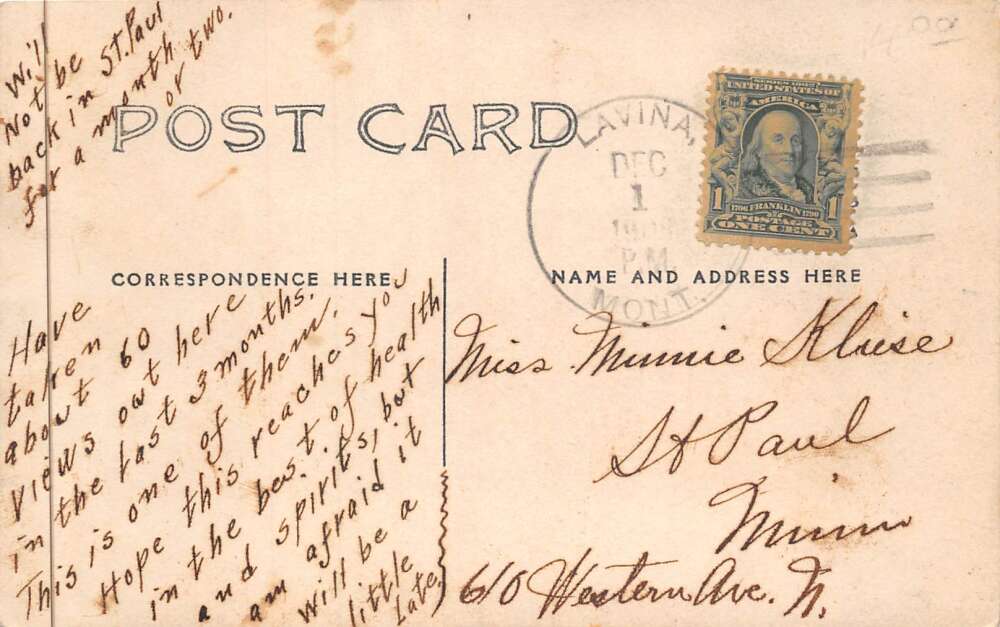 Will
Not be
back in St. Paul
for a month
or two.
POST CARD
LAVINA,
DEC
1
P.M.
MONT.
SERIES 1902
UNITED STATES OF
AMERICA
1 1
1706 FRANKLIN 1790
POSTAGE
ONE CENT
CORRESPONDENCE HERE
NAME AND ADDRESS HERE
Have
taken
about 60
views out here
in the last 3 months.
This is one of them.
Hope this reaches you
in the best of health
and spirits, but
am afraid it
will be a
little
late.
Miss Minnie Kliese
St Paul
Minn
610 Western Ave. N.